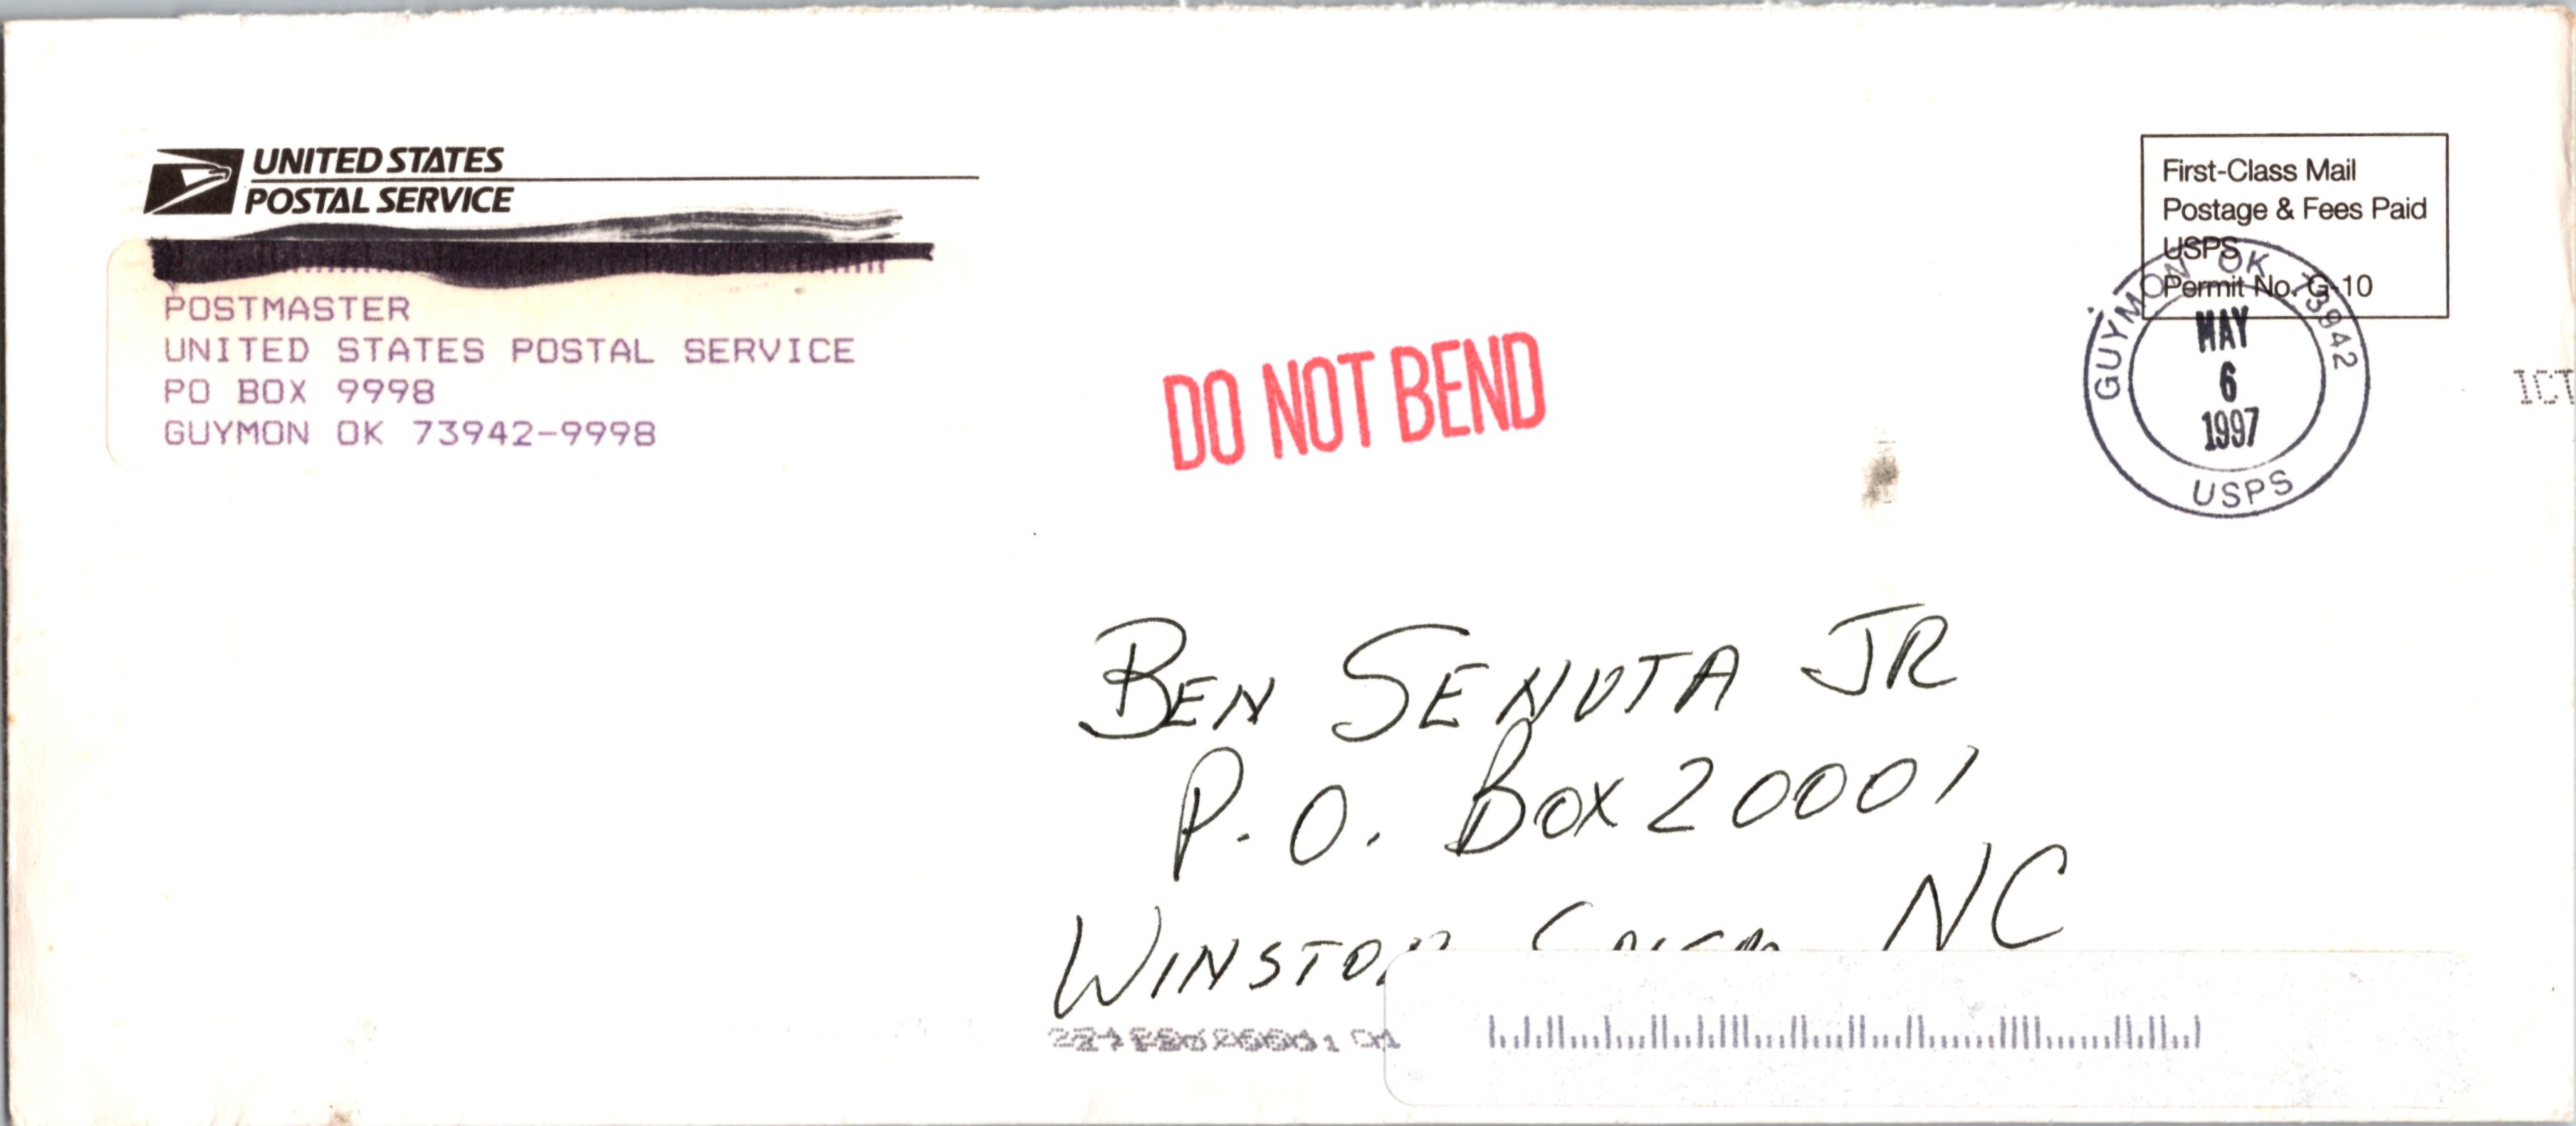 UNITED STATES
POSTAL SERVICE
POSTMASTER
UNITED STATES POSTAL SERVICE
PO BOX 9998
GUYMON OK 73942-9998
First-Class Mail
Postage & Fees Paid
USPS
Permit No. G-10
GUYMON OK 73942
MAY
6
1997
USPS
ICT
DO NOT BEND
BEN SENUTA JR
P.O. BOX 20001
WINSTON SALEM NC